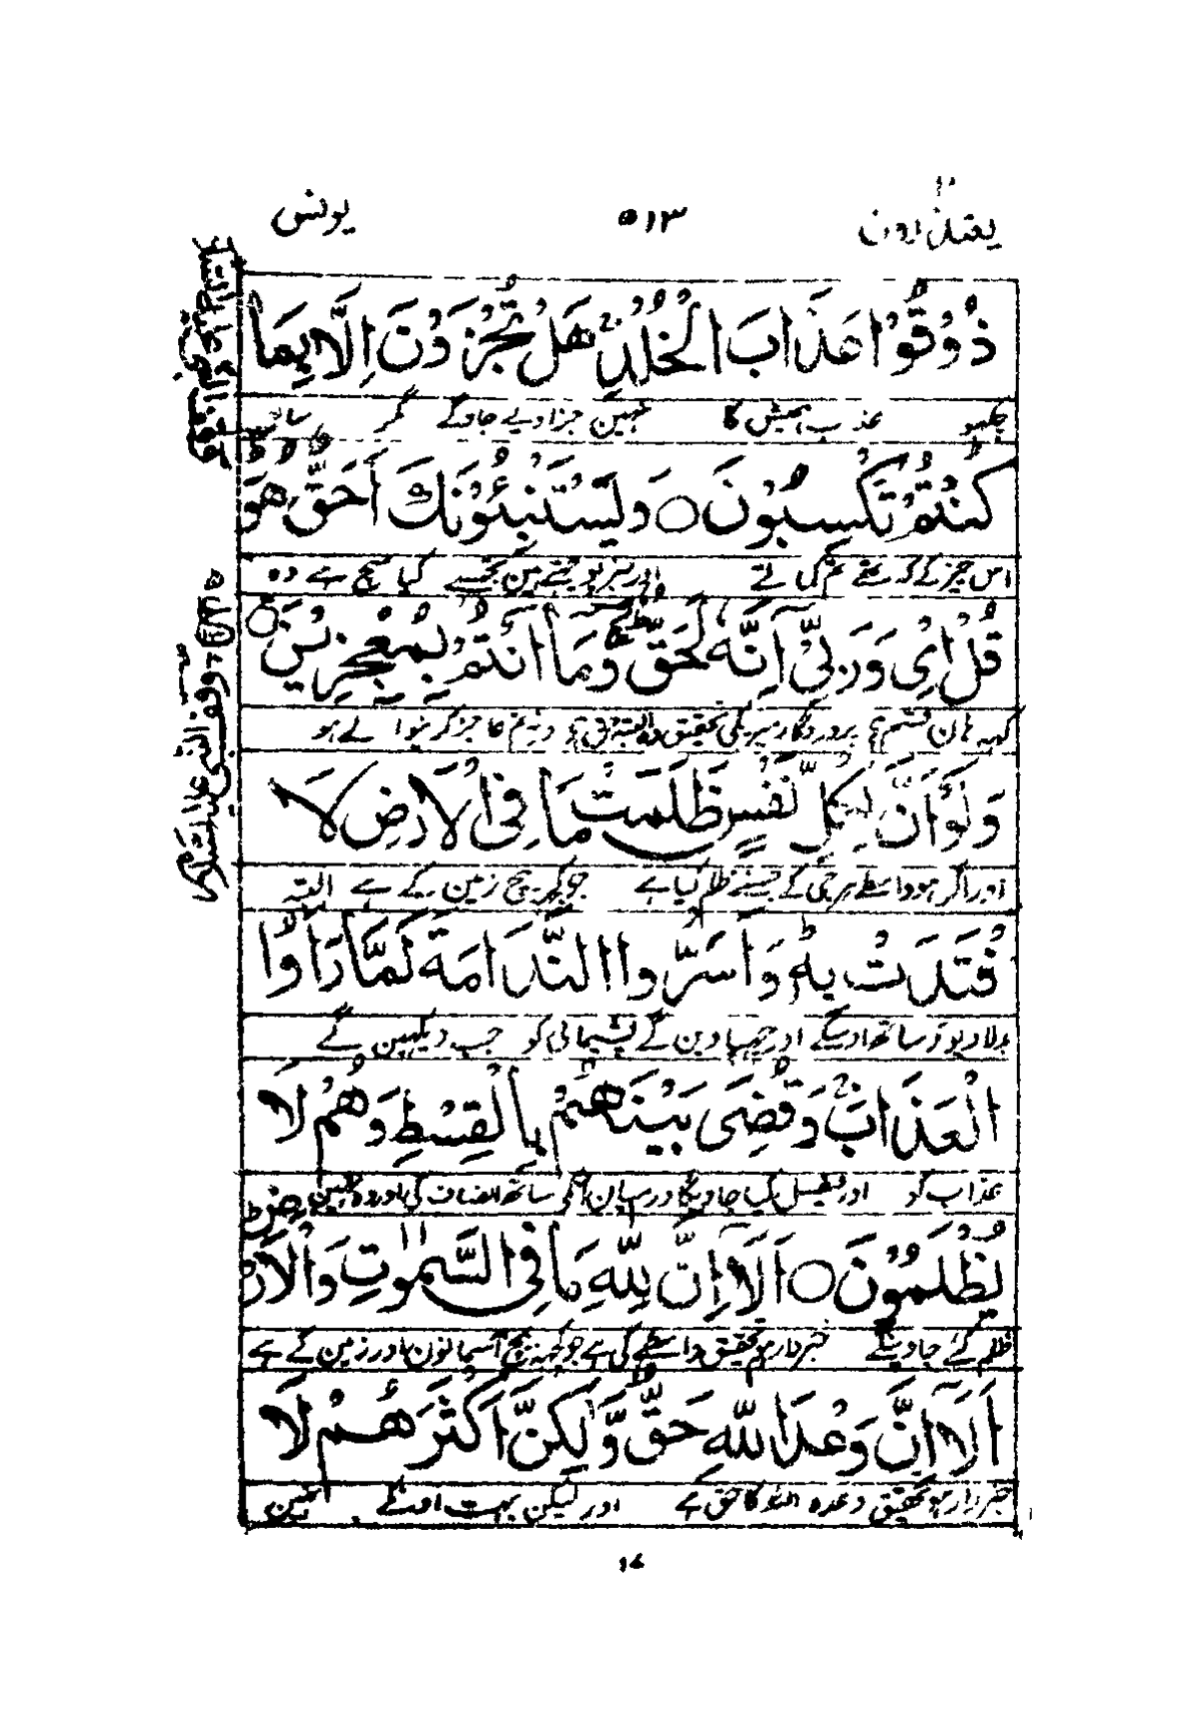 یعتذرون ۵۱۳ یونس
ذُوْقُوْا عَذَابَ الْخُلْدِ هَلْ تُجْزَوْنَ اِلَّا بِمَا
چکھو عذاب ہمیش کا نہین جزا دیے جاوگے مگر ساتھ
كُنْتُمْ تَكْسِبُوْنَ ○ وَيَسْتَنْبِئُوْنَكَ اَحَقٌّ هُوَ
اس چیز کے کہ تھے تم کماتے اور خبر پوچھتے ہین تجھسے کیا سچ ہے وہ
قُلْ اِيْ وَرَبِّيْٓ اِنَّهٗ لَحَقٌّ وَمَآ اَنْتُمْ بِمُعْجِزِيْنَ ○
کہہ ہان قسم ہے پروردگار میرے کی تحقیق وہ البتہ حق ہے اور نہین تم عاجز کرنیوالے ہو
وَلَوْ اَنَّ لِكُلِّ نَفْسٍ ظَلَمَتْ مَا فِى الْاَرْضِ لَا
اور اگر ہو واسطے ہر جی کے جسنے ظلم کیا ہے جو کچھ بیچ زمین کے ہے البتہ
فْتَدَتْ بِهٖ وَاَسَرُّوا النَّدَامَةَ لَمَّا رَاَوُا
بدلا دیوے ساتھ اوسکے اور چھپاوین گے پشیمانی کو جب دیکھین گے
الْعَذَابَ وَقُضِيَ بَيْنَهُمْ بِالْقِسْطِ وَهُمْ لَا
عذاب کو اور فیصل کیا جاویگا درمیان اونکے ساتھ انصاف کے اور وہ نہین
يُظْلَمُوْنَ ○ اَلَآ اِنَّ لِلّٰهِ مَا فِى السَّمٰوٰتِ وَالْاَرْضِ
ظلم کئے جاوینگے خبردار ہو تحقیق واسطے اللہ کے ہے جو کچھ بیچ آسمانون اور زمین کے ہے
اَلَآ اِنَّ وَعْدَ اللّٰهِ حَقٌّ وَّلٰكِنَّ اَكْثَرَهُمْ لَا
خبردار ہو تحقیق وعدہ اللہ کا حق ہے اور لیکن بہت اونکے نہین
وقف النبی علیہ السلام